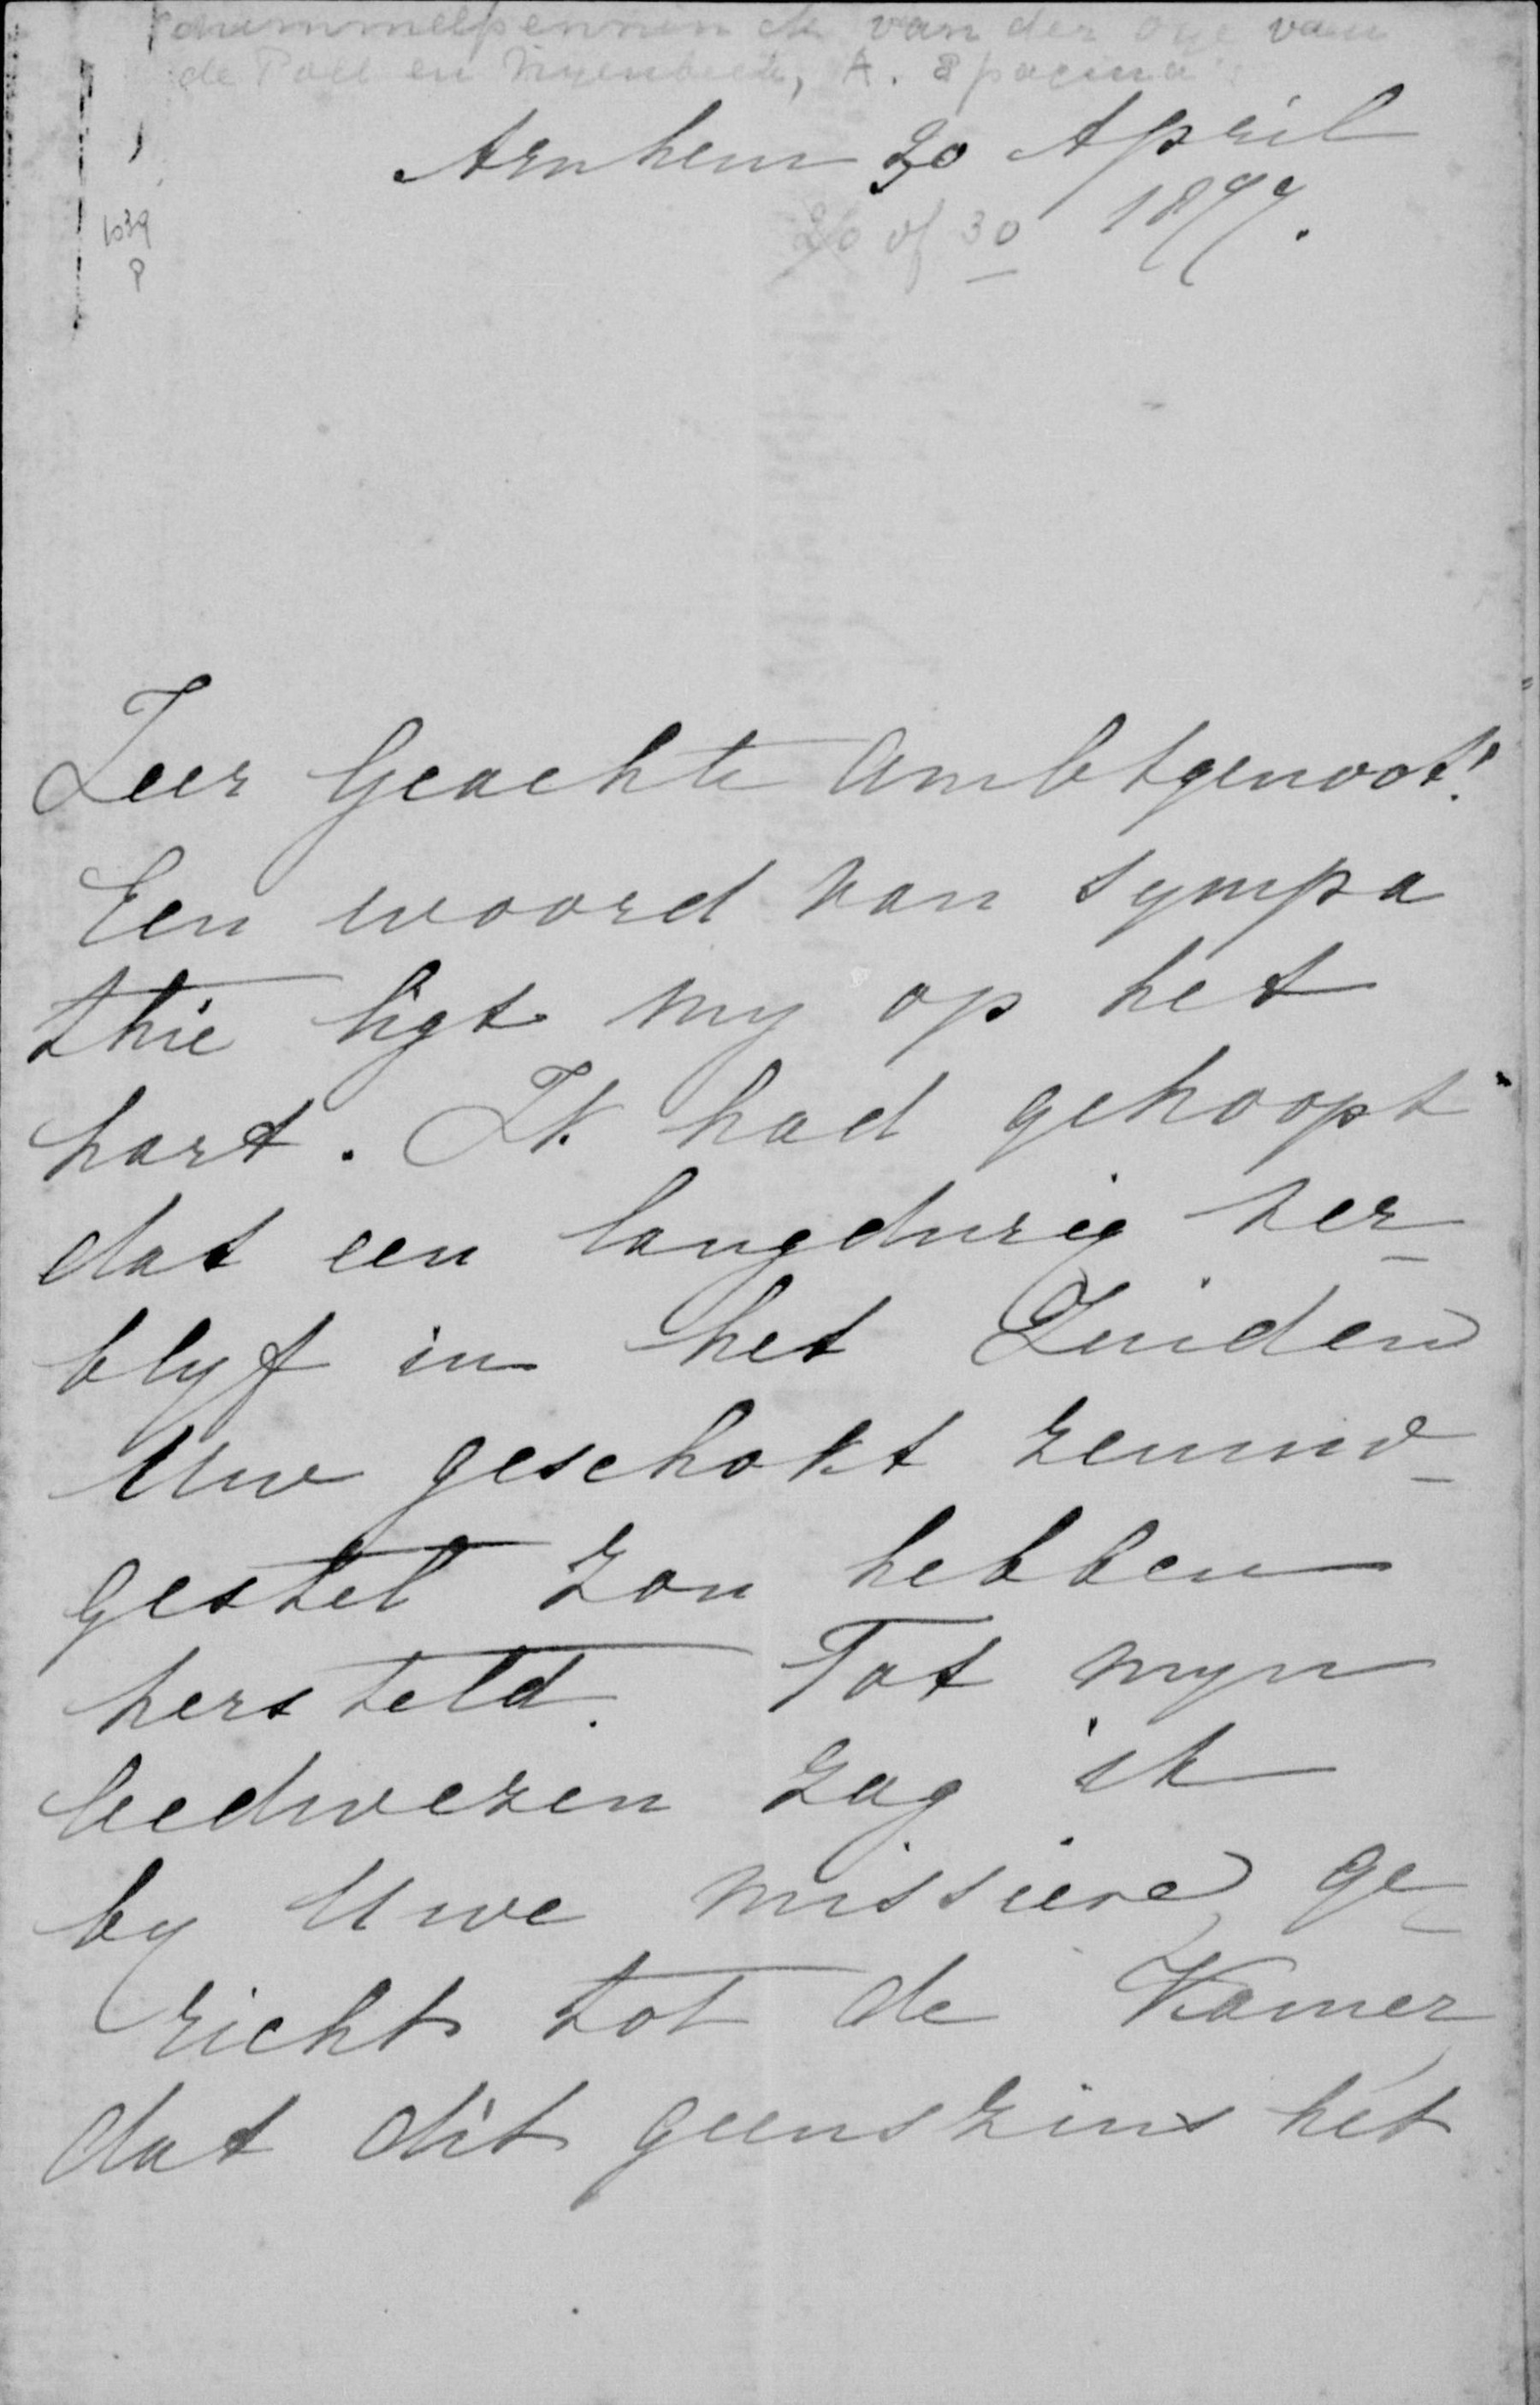 Schimmelpenninck van der Oye van
de Poll en Nijenbeek, A. 8 pagina's
Arnhem 30 April
20 of 30 1877.
1039
P
Zeer Geachte Ambtgenoot!
Een woord van sympa
thie ligt my op het
hart. Ik had gehoopt
dat een langdurig ver_
blyf in het Zuiden
Uw geschokt zenuw_
gestel zou hebben
hersteld. Tot myn
leedwezen zag ik
by Uwe missieve, ge_
richt tot de Kamer,
dat dit geenszins het